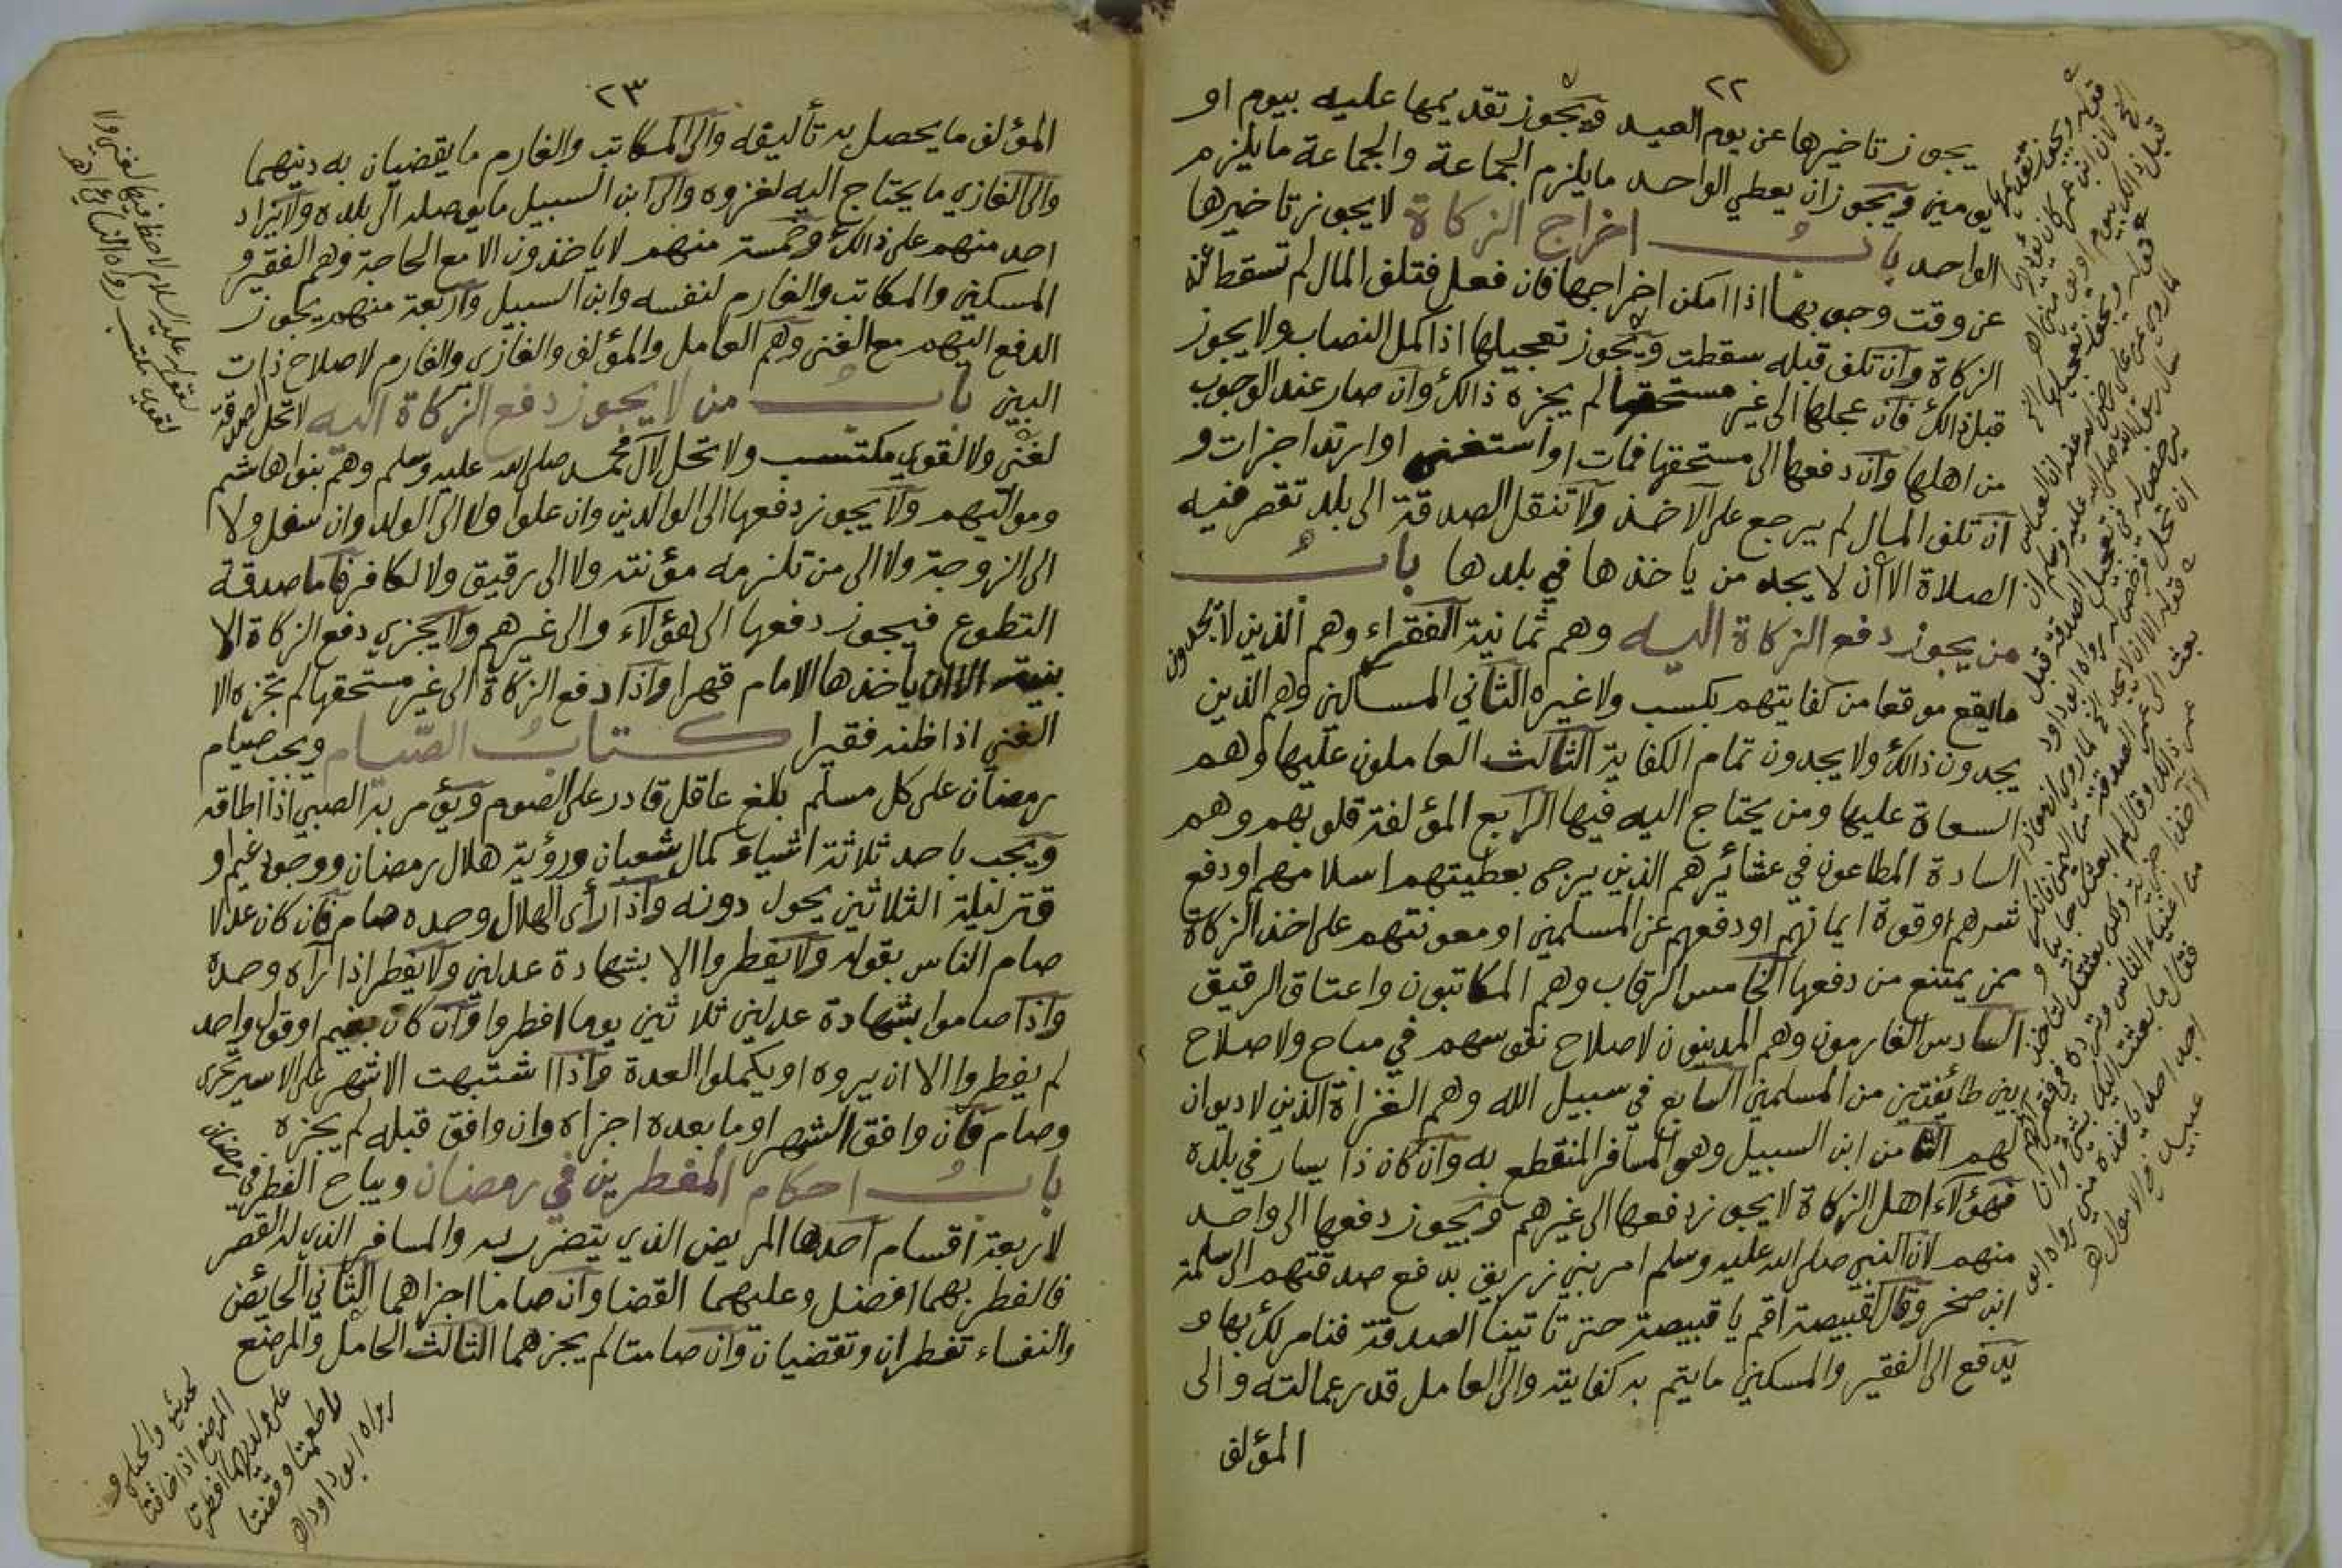 ٢٢
يجوز تاخيرها عن يوم العيد ويجوز تقديمها عليه بيوم او
يومين ويجوز ان يعطي الواحد مايلزم الجماعة والجماعة مايلزم
الواحد باب اخراج الزكاة لا يجوز تاخيرها
عن وقت وجوبها اذا امكن اخراجها فان فعل فتلف المال لم تسقط عنه
الزكاة وان تلف قبله سقطت ويجوز تعجيلها اذا كمل النصاب ولا يجوز
قبل ذالك فان عجلها الى غير مستحقها لم يجزه ذالك وان صار عند الوجوب
من اهلها وان دفعها الى مستحقها فمات او استغنى او ارتد اجزات و
ان تلف المال لم يرجع على الآخذ ولا تنقل الصدقة الى بلد تقصر فيه
الصلاة الا ان لا يجد من ياخذها في بلدها باب
من يجوز دفع الزكاة اليه وهم ثمانية الفقراء وهم الذين لا يجدون
مايقع موقعا من كفايتهم بكسب ولا غيره الثاني المساكين وهم الذين
يجدون ذالك ولا يجدون تمام الكفاية الثالث العاملون عليها وهم
السعاة عليها ومن يحتاج اليه فيها الرابع المؤلفة قلوبهم وهم
السادة المطاعون في عشائرهم الذين يرجى بعطيتهم اسلامهم او دفع
شرهم او قوة ايمانهم او دفعهم عن المسلمين او معونتهم على اخذ الزكاة
ممن يمتنع من دفعها الخامس الرقاب وهم المكاتبون واعتاق الرقيق
السادس الغارمون وهم المدينون لاصلاح نفوسهم في مباح ولاصلاح
بين طائفتين من المسلمين السابع في سبيل الله وهم الغزاة الذين لا ديوان
لهم الثامن ابن السبيل وهو المسافر المنقطع به وان كان ذا يسار في بلده
فهؤلاء اهل الزكاة لا يجوز دفعها الى غيرهم ويجوز دفعها الى واحد
منهم لان النبي صلى الله عليه وسلم امر بني زريق بدفع صدقتهم الى سلمة
ابن صخر وقال لقبيصة اقم يا قبيصة حتى تاتينا الصدقة فنامر لك بها و
يدفع الى الفقير والمسكين مايتم به كفايته والى العامل قدر عمالته والى
المؤلف
قوله ويجوز تقديمها
الخ لان ابن عمر كان يؤديها
قبل ذالك بيوم او يومين اهـ
قوله ويجوز تعجيلها الخ
لما روي عن علي رضي الله عنه ان العباس
سال رسول الله صلى الله عليه وسلم ان
يرخص له في تعجيل الصدقة قبل
ان تحل فرخص له رواه ابو داود
قوله الا ان لا يجد الخ لما روي ان معاذا
بعث الى عمر الصدقة من اليمن فانكر
عمر ذالك وقال لم ابعثك جابيا و
لا آخذا جزية ولكن بعثتك لتاخذ
من اغنياء الناس وترده في فقرائهم
فقال ما بعثت اليك بشيء وانا
اجد احدا ياخذه مني رواه ابو
عبيد في الاموال اهـ
٢٣
المؤلف مايحصل به تأليفه والى المكاتب والغارم مايقضيان به دينهما
والى الغازي مايحتاج اليه لغزوه والى ابن السبيل مايوصله الى بلده ولا يزاد
احد منهم على ذالك وخمسة منهم لا ياخذون الا مع الحاجة وهم الفقير و
المسكين والمكاتب والغارم لنفسه وابن السبيل واربعة منهم يجوز
الدفع اليهم مع الغنى وهم العامل والمؤلف والغازي والغارم لاصلاح ذات
البين باب من لا يجوز دفع الزكاة اليه لا تحل الصدقة
لغني ولا لقوي مكتسب ولا تحل لآل محمد صلى الله عليه وسلم وهم بنوا هاشم
ومواليهم ولا يجوز دفعها الى الوالدين وان علوا ولا الى الولد وان سفل ولا
الى الزوجة ولا الى من تلزمه مؤنته ولا الى رقيق ولا لكافر فاما صدقة
التطوع فيجوز دفعها الى هؤلاء والى غيرهم ولا يجزي دفع الزكاة الا
بنية الا ان ياخذها الامام قهرا واذا دفع الزكاة الى غير مستحقها لم تجزه الا
الغني اذا ظنه فقيرا كتاب الصيام ويجب صيام
رمضان على كل مسلم بالغ عاقل قادر على الصوم ويؤمر به الصبي اذا اطاقه
ويجب باحد ثلاثة اشياء كمال شعبان ورؤية هلال رمضان ووجود غيم او
قتر ليلة الثلاثين يحول دونه واذا رأى الهلال وحده صام فان كان عدلا
صام الناس بقوله ولا يفطروا الا بشهادة عدلين ولا يفطر اذا رآه وحده
واذا صاموا بشهادة عدلين ثلاثين يوما افطروا وان كان بغيم او قول واحد
لم يفطروا الا ان يروه او يكملوا العدة واذا اشتبهت الاشهر على الاسير تحرى
وصام فان وافق الشهر او مابعده اجزاه وان وافق قبله لم يجزه
باب احكام المفطرين في رمضان ويباح الفطر في رمضان
لاربعة اقسام احدها المريض الذي يتضرر به والمسافر الذي له القصر
فالفطر بهما افضل وعليهما القضا وان صاما اجزاهما الثاني الحائض
والنفساء تفطران وتقضيان وان صامتا لم يجزهما الثالث الحامل والمرضع
لقوله عليه السلام لا حظ فيها لغني ولا
لقوي مكتسب رواه النسائي اهـ
لحديث والحبلى و
المرضع اذا خافتا
على ولديهما افطرتا
واطعمتا وقضتا
رواه ابو داود اهـ